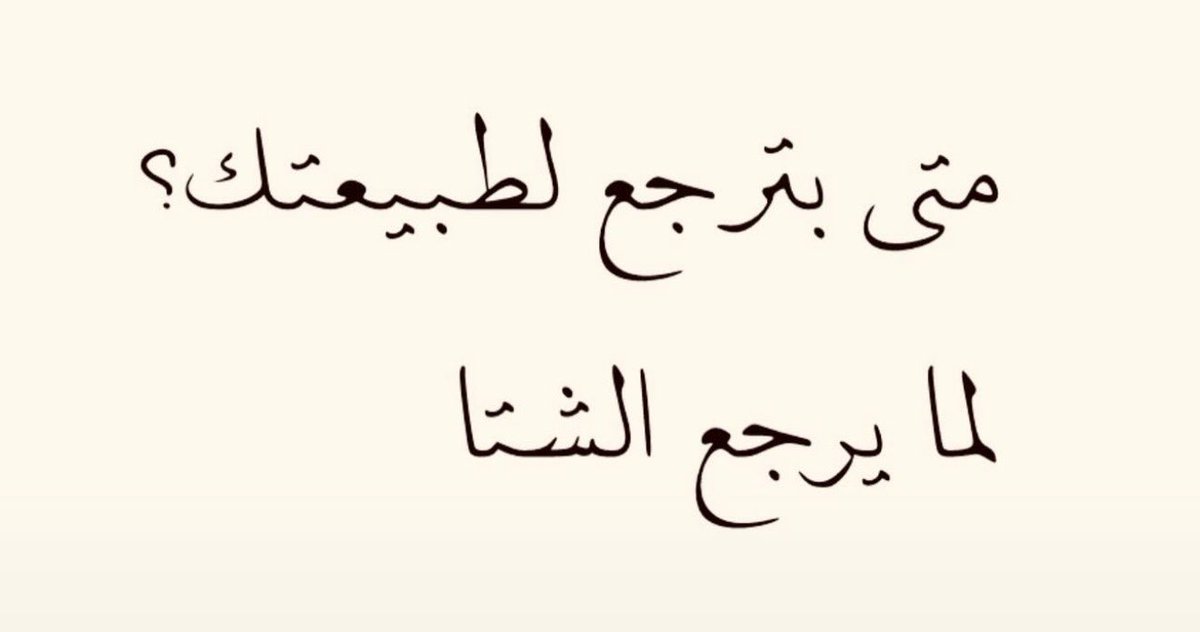 متى بترجع لطبيعتك؟
لما يرجع الشتا